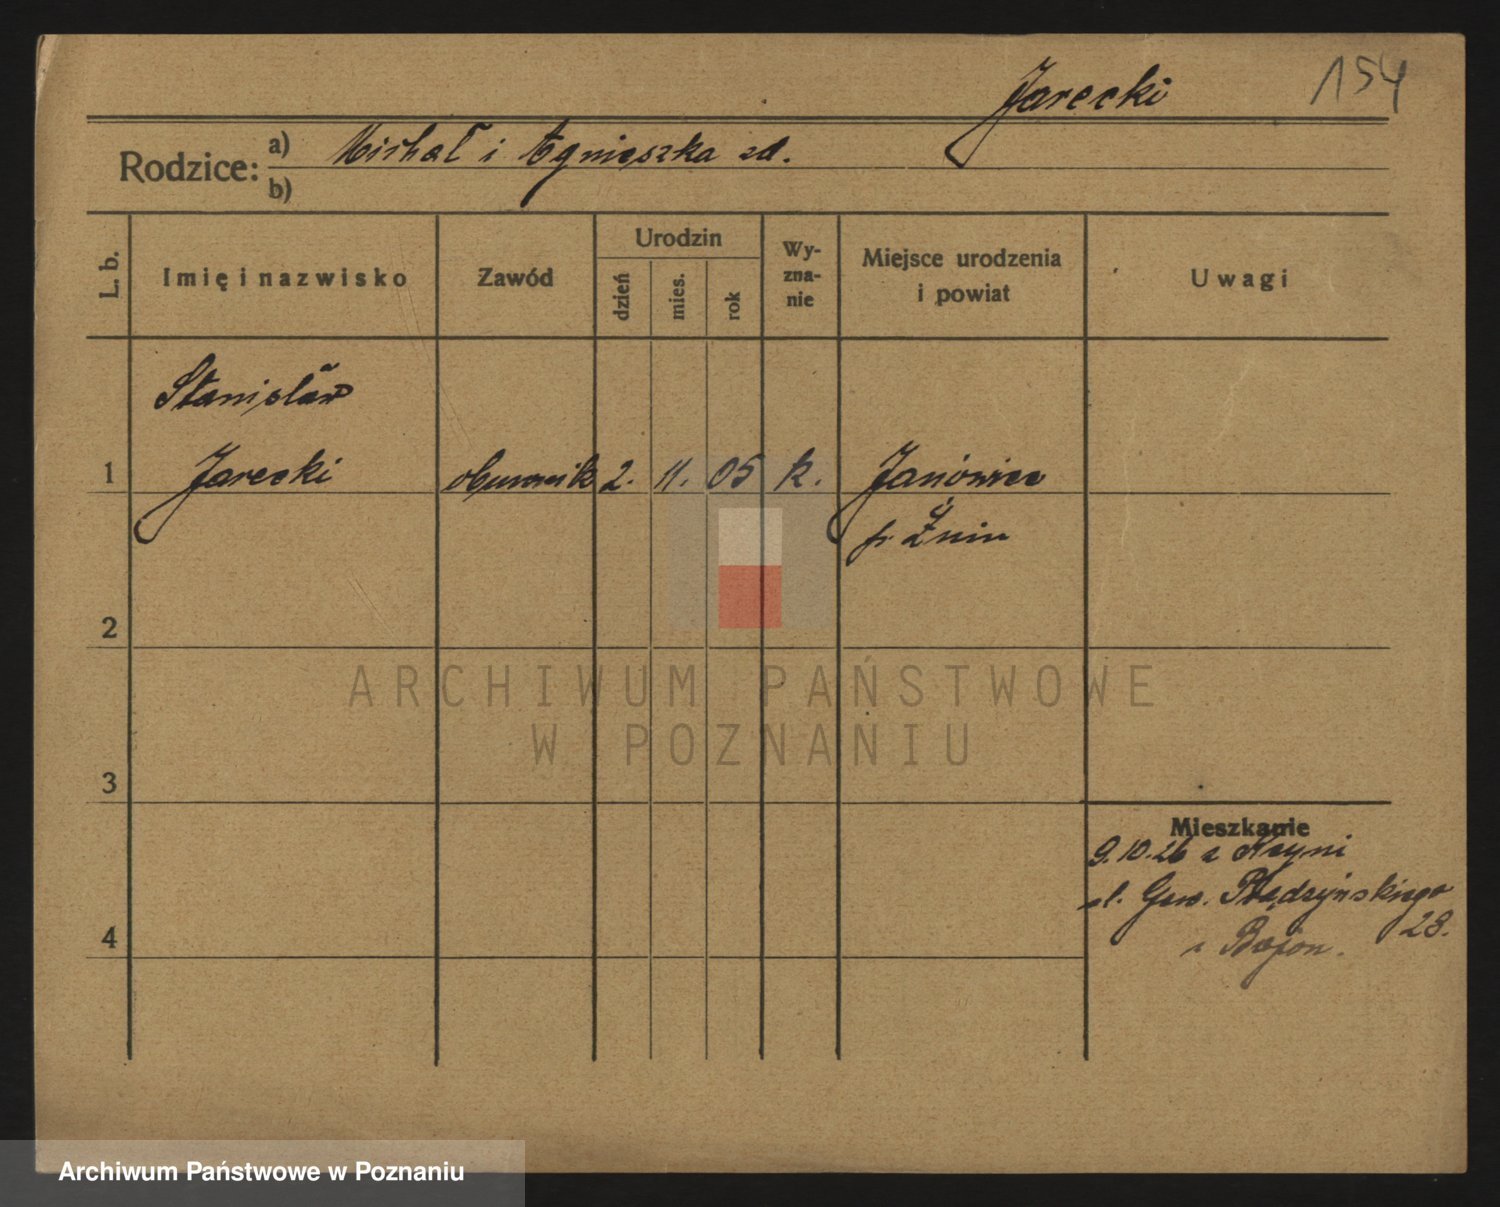 154
Jarecki
Rodzice: a) Michał i Agnieszka zd.
b)
L. b.
Imię i nazwisko
Zawód
Urodzin
dzień
mies.
rok
Wy-
zna-
nie
Miejsce urodzenia
i powiat
Uwagi
Stanisław
1 Jarecki 2. 11. 05 k. Janówiec
p. Żnin
2
3
4
Mieszkanie
9.10.26 z Kcyni
ul. Gen. Prądzyńskiego
28.
ARCHIWUM PAŃSTWOWE
W POZNANIU
Archiwum Państwowe w Poznaniu